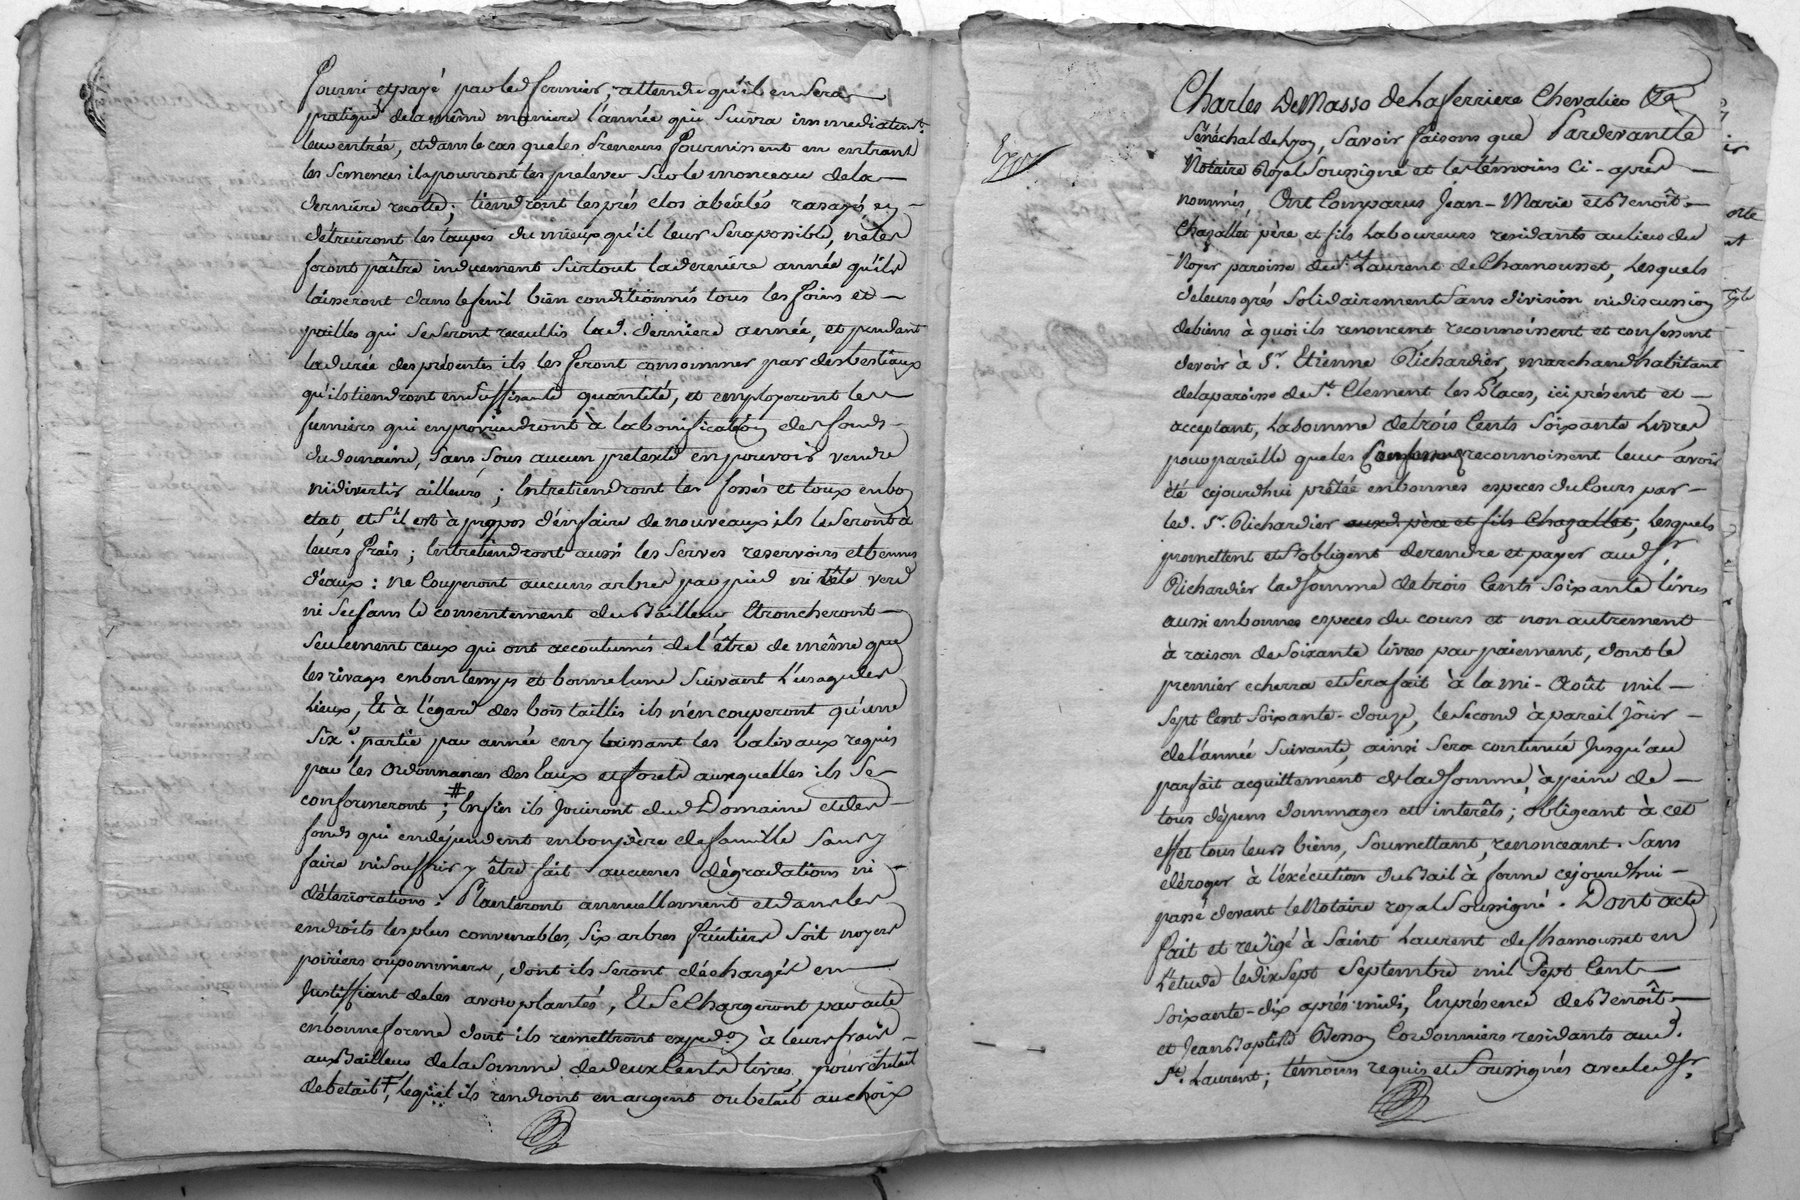 fourni et payé par led. fermier, attendu qu'il en sera
pratiqué de la même maniere l'année qui suivra immediatemt.
leur entrée, et dans le cas que les Preneurs fournissent en entrant
les semences ils pourront les prelever sur le monceau de la
derniere recolte; tiendront les prés clos abéalés rasayés, en
détruiront les taupes du mieux qu'il leur sera possible, ne les
feront paître induement surtout la derniere année qu'ils
laisseront dans le fenil bien conditionnés tous les foins et
pailles qui se seront recueillis lad. derniere année, et pendant
la durée des présentes ils les feront consommer par des bestiaux
qu'ils tiendront en suffisante quantité, et employeront les
fumiers qui en proviendront à la bonification des fonds
du domaine, sans sous aucun pretexte en pouvoir vendre
ni divertir ailleurs; Entretiendront les fossés et toux en bon
etat, et s'il est à propos d'en faire de nouveaux ils le seront à
leurs frais; Entretiendront aussi les serves reservoirs et bennes
d'eaux: ne Couperont aucuns arbres par pied ni tête verd
ni sec sans le consentement du Bailleur, Etroncheront
seulement ceux qui ont accoutumés de l'être de même que
les rivages en bon temps et bonne lune suivant l'usage des
Lieux, Et à l'égard des bois taillis ils n'en couperont qu'une
Sixe. partie par année en y laissant les balivaux requis
par les Ordonnances des Eaux et forets auxquelles ils se
conformeront; # Enfin ils Jouiront dud. Domaine et des
fonds qui en dépendent en bon père de famille sans y
faire ni souffrir y être fait aucunes dégradations ni
déteriorations: Planteront annuellement et dans les
endroits les plus convenables, six arbres fruitiers soit noyers
poiriers ou pommiers, dont ils seront déchargés en
Justiffiant de les avoir plantés, Et se Chargeront par acte
en bonne forme dont ils remettront expedon à leurs frais
aux Bailleur de la somme de deux Cents livres pour
de betail, lequel ils rendront en argent ou betail au choix
Charles De Masso de La ferriere Chevalier &a
Sénéchal de Lyon, Savoir faisons que Pardevant le
Notaire Royal Soussigné et les témoins Ci-après
nommés, Ont Comparus Jean-Marie et Benoît
Chazallet père et fils Laboureurs residants au lieu du
Noyer paroisse de St. Laurent de Chamousset, Lesquels
de leurs grés Solidairement sans division ni discussion
de biens à quoi ils renoncent reconnoissent et confessent
devoir à Sr. Etienne Richardier, marchand habitant
de la paroisse de St. Clement les Places, ici présent et
acceptant, La somme de trois Cents Soixante Livres
pour pareille que les reconnoissent leur avoir
été cejourdhui prêtée en bonnes especes du Cours par
led. Sr. Richardier aux d. père et fils Chazallet, Lesquels
promettent et s'obligent de rendre et payer aud. Sr
Richardier lad. somme de trois Cents soixante livres
aussi en bonnes especes du cours et non autrement
à raison de soixante livres par paiement, dont le
premier echerra et sera fait à la mi-Août mil
Sept Cent Soixante-douze, le second à pareil Jour
de l'année suivante, ainsi sera continué Jusqu'au
parfait acquittement de lad. somme, à peine de
tous dépens dommages et intérêts; obligeant à cet
effet tous leurs biens, Soumettant, renonceant. Sans
déroger à l'éxécution du Bail à ferme cejourdhui
passé devant le Notaire royal Soussigné. Dont acte
fait et redigé à Saint Laurent de Chamousset en
L'étude le dix sept Septembre mil sept Cent
soixante-dix après midi, En présence de Benoît
et Jean Baptiste Besson Cordonniers residants aud.
St. Laurent; témoins requis et Soussignés avec led. Sr.